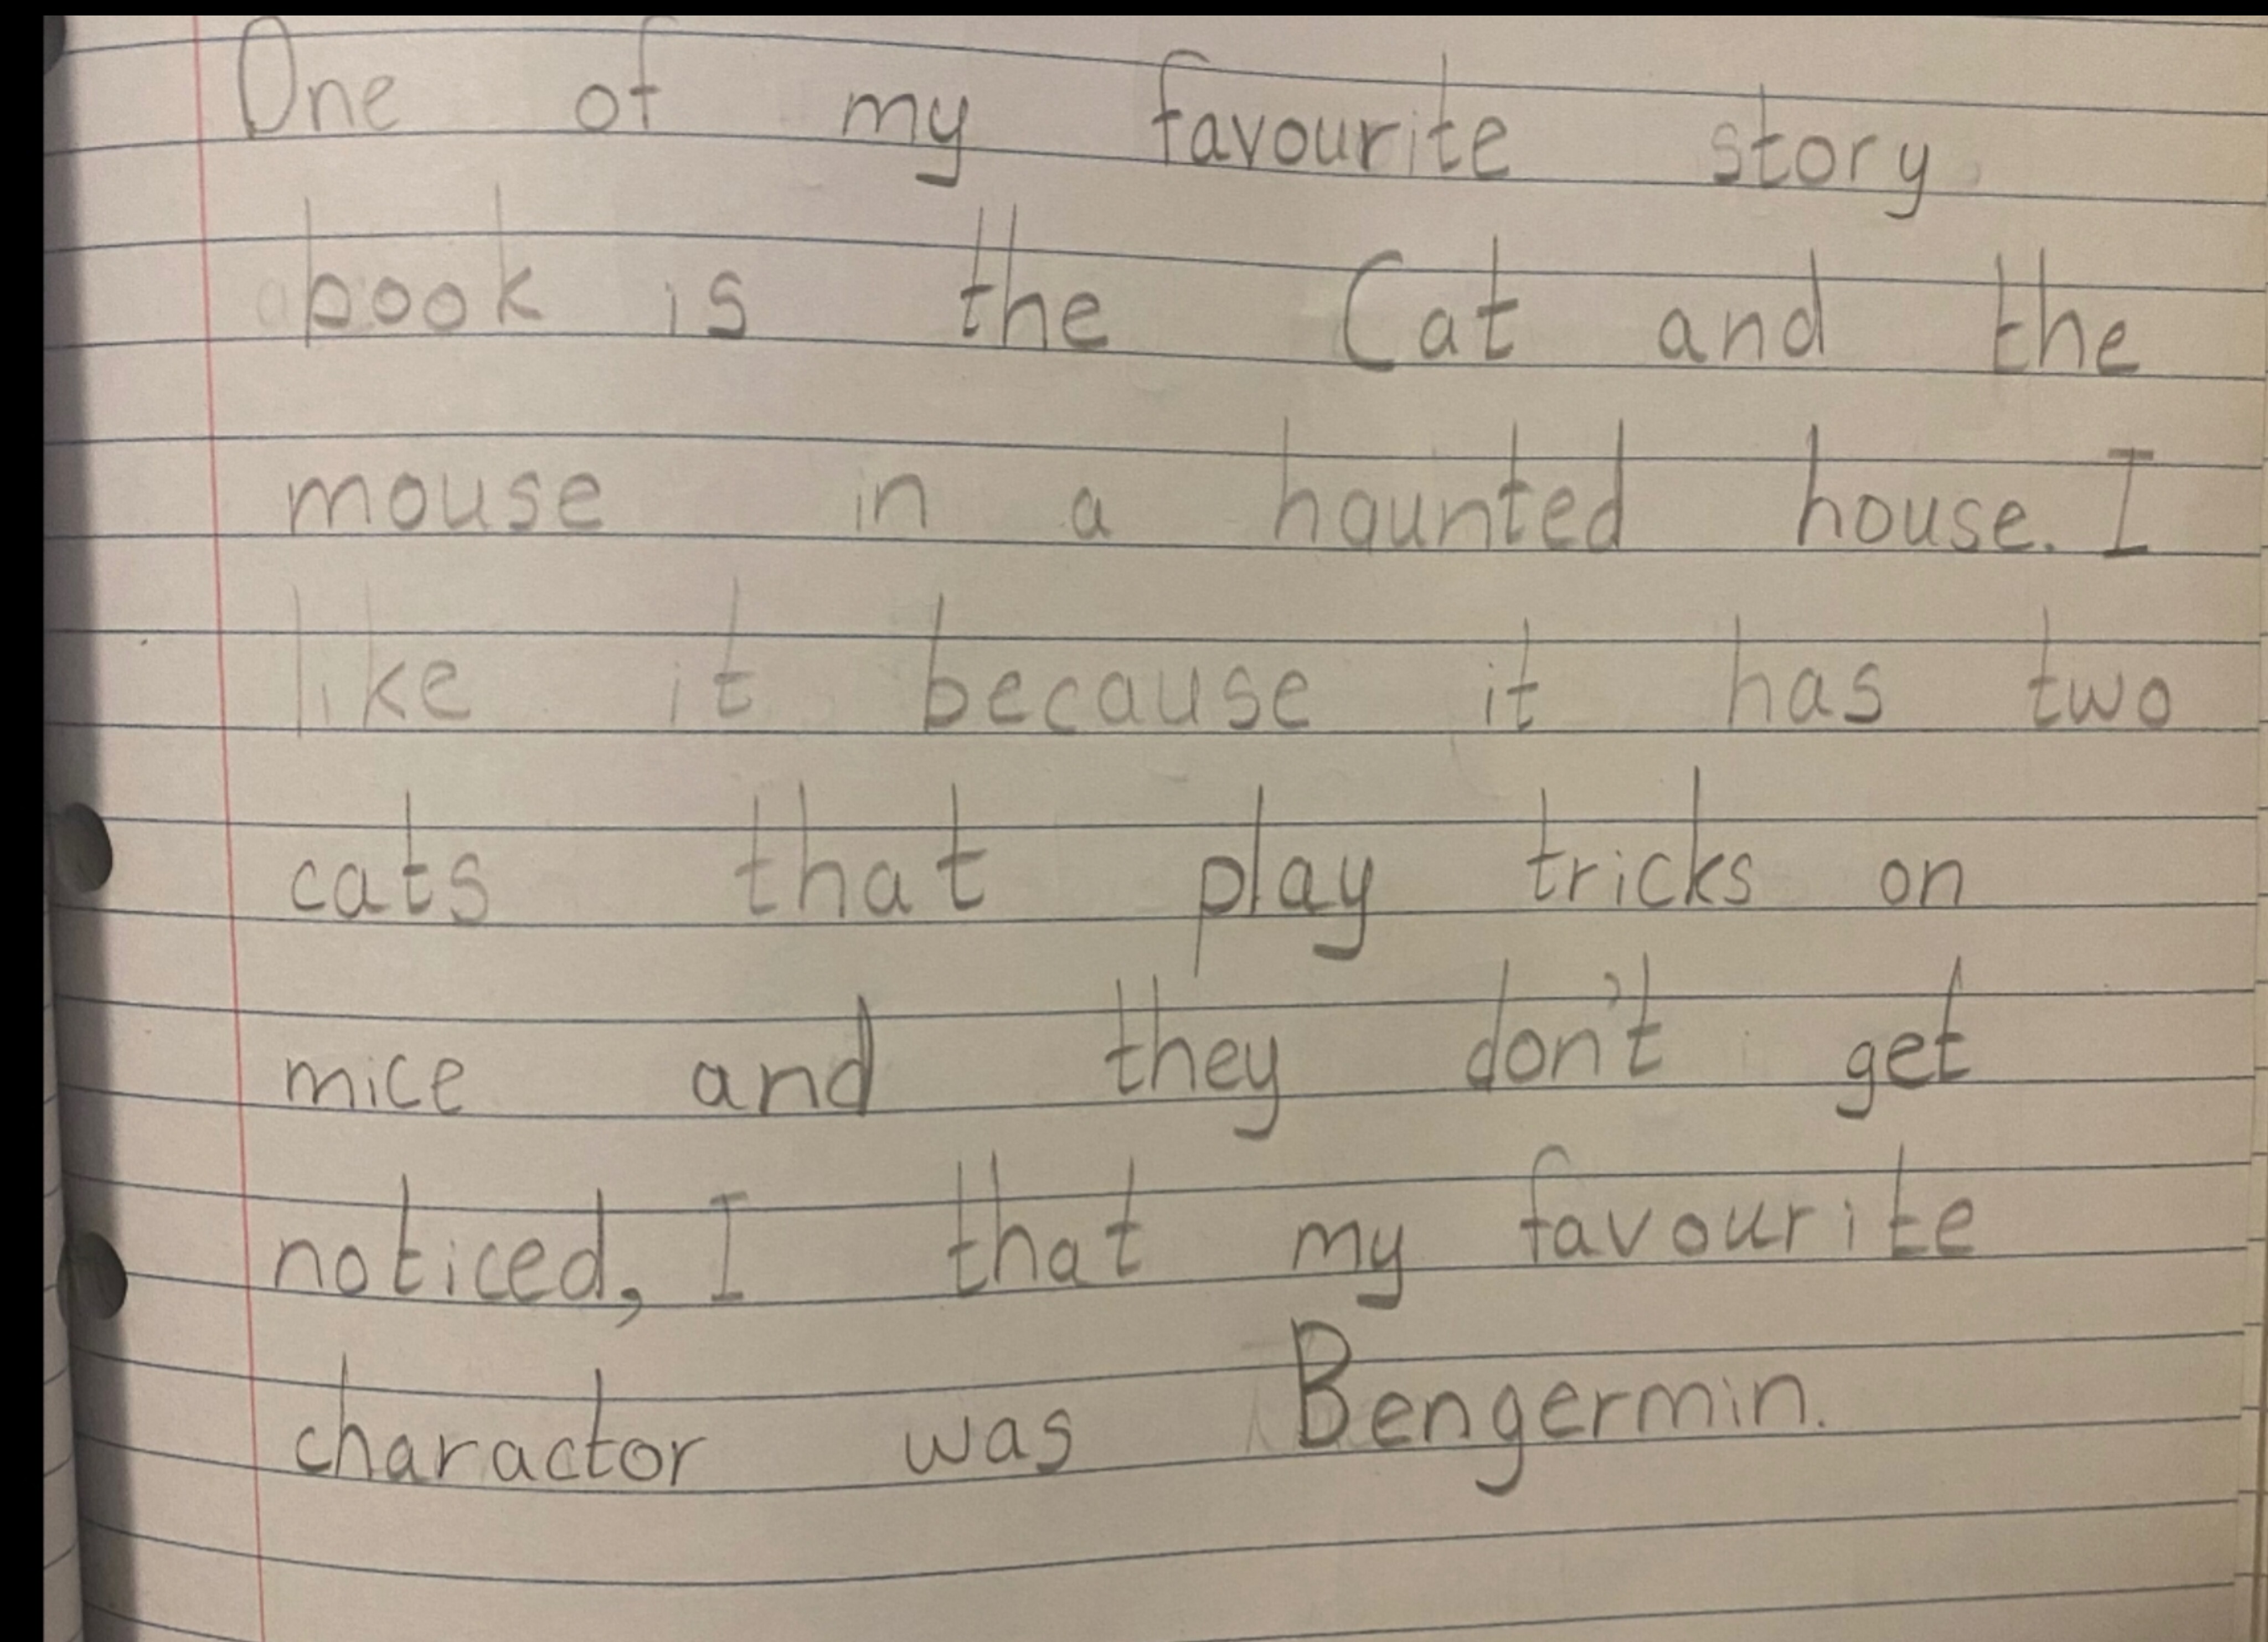 One of my favourite story
book is the Cat and the
mouse in a haunted house. I
like it because it has two
cats that play tricks on
mice and they don't get
noticed, I that my favourite
charactor was Bengermin.